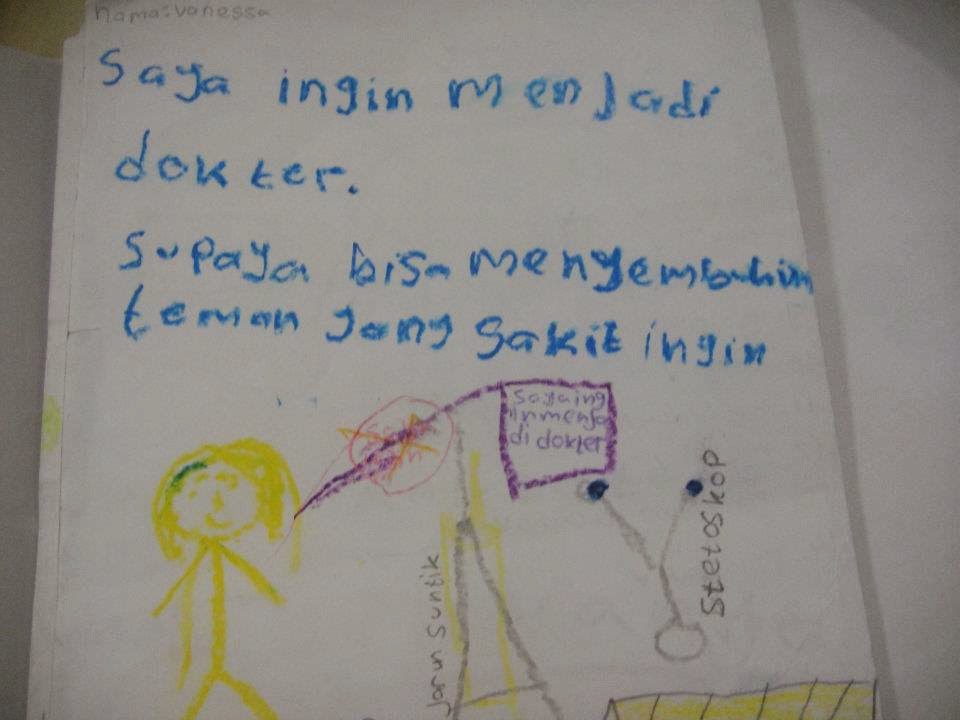 nama:vanessa
Saya ingin menjadi
dokter.
Supaya bisa menyembuhin
teman yang sakit ingin
Saya ing
in menja
di dokter
Jarun Suntik
Stetoskop